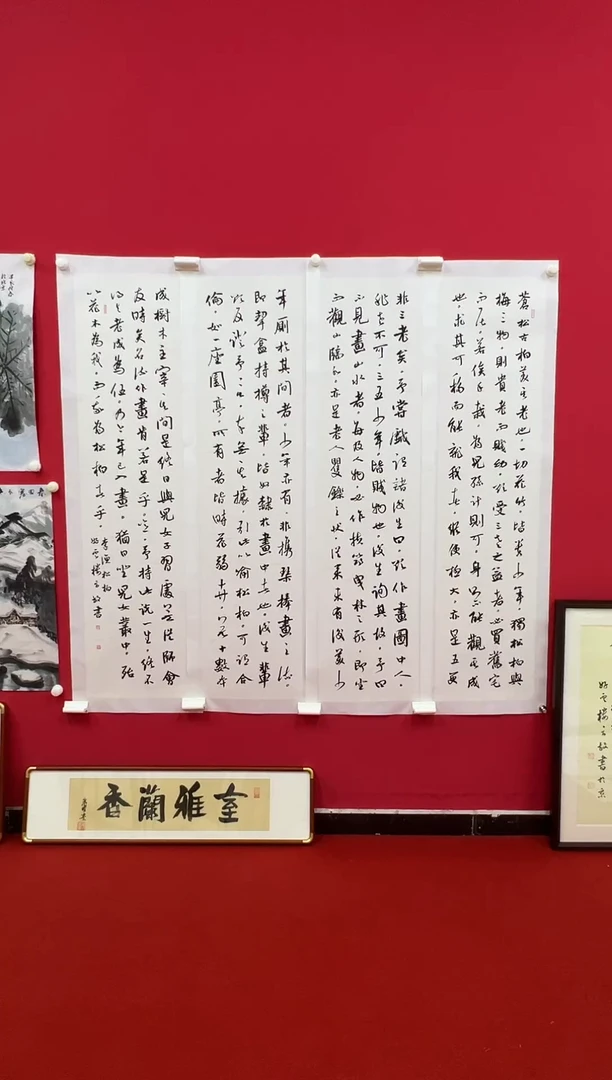 蒼松古柏，美其老也。一切花竹，皆貴少年，獨松柏與
梅三物，則貴老而賤幼，欲受三老之益者，必買舊宅
而居，若俟手栽，為兒孫計則可，身則不能觀其成
也，求其可移而能就我者，縱使極大，亦是五更
非三老矣，予嘗戲謂諸後生曰，欲作畫圖中人，
非老不可，三五少年，皆賤物也，後生詢其故，予曰
不見畫山水者，每及人物，必作扶筇曳杖之形，即坐
而觀山臨水，亦是老人矍鑠之狀，從來未有俊美少
年廁於其間者，少年亦有，非攜琴捧畫之流，
即挈盒持樽之輩，皆奴隸於畫中者也，後生輩
欲反證予言，卒無其據，引此以喻松柏，可謂合
倫，如一座園亭，所有者皆時花弱卉，無十數本
成樹木主宰其間，是終日與兒女子習處，無從師會
友時矣，名流作畫，肯若是乎，噫，予持此說一生，終不
得與老成為伍，乃今年已入畫，猶日坐兒女叢中，殆
以花木為我，而我為松柏者乎，李漁松柏
室雅蘭香